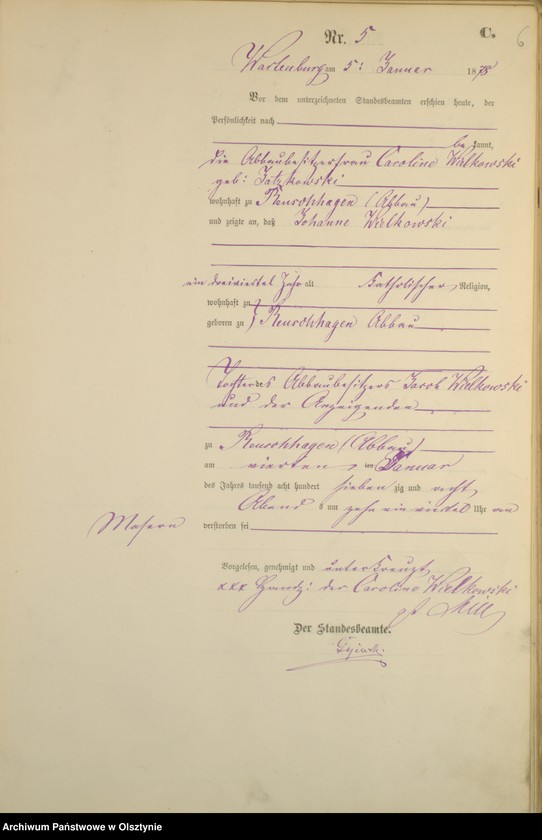 6
C.
Nr. 5
Wartenburg am 5: Januar 1878
Vor dem unterzeichneten Standesbeamten erschien heute, der
Persönlichkeit nach
be kannt,
die Abbaubesitzerfrau Caroline Wielkowski
geb: Jatzkowski
wohnhaft zu Reuschhagen (Abbau)
und zeigte an, daß Johanne Wielkowski
ein dreiviertel Jahr alt Katholischer Religion,
wohnhaft zu
geboren zu } Reuschhagen Abbau
Tochter des Abbaubesitzers Jacob Wielkowski
und der Anzeigenden
zu Reuschhagen (Abbau)
am vierten im Januar
des Jahres tausend acht hundert sieben zig und acht
Abend s um zehn ein viertel Uhr an
Masern
verstorben sei
Vorgelesen, genehmigt und unterkreuzt
xxx Handz: der Caroline Wielkowski
Der Standesbeamte.
Archiwum Państwowe w Olsztynie